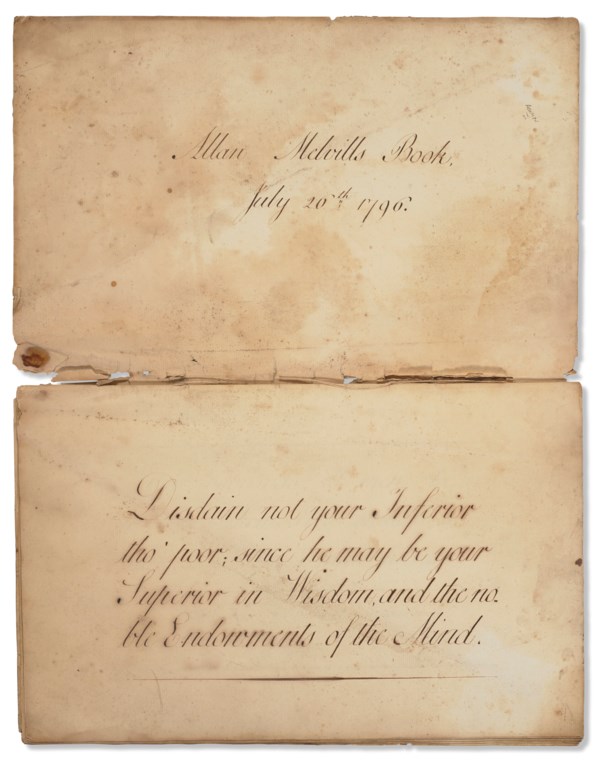 Allan Melvills Book.
July 20th 1796.
Disdain not your Inferior
tho' poor; since he may be your
Superior in Wisdom, and the no-
ble Endowments of the Mind.